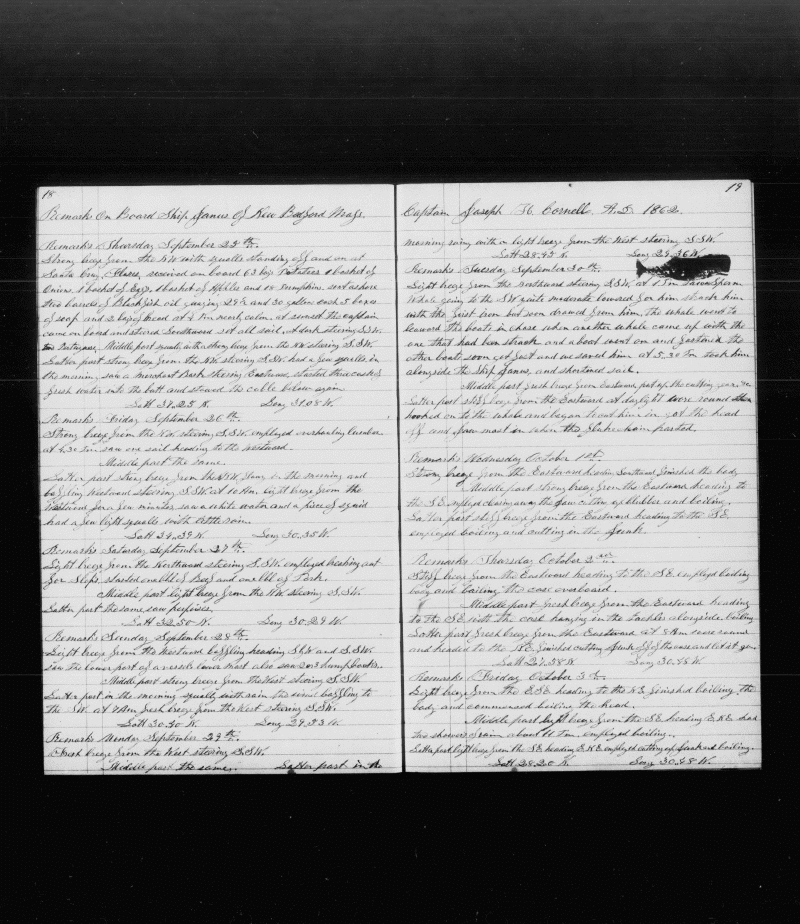 18
Remarks On Board Ship Janus Of New Bedford Mass.
Remarks Thursday September 25th.
Strong breeze from the NW with squalls standing off and on at
Santa Cruz, Flores, received on board 63 bags Potatoes 1 basket of
Onions, 1 basket of Eggs, 1 basket of Apples and 18 Pumpkins, sent ashore
two barrels of Blackfish oil gauging 29½ and 30 gallons each 3 boxes
of soap and head at near calm, at sunset the captain
came on board and steered Southward set all sail, dark steering S.S.W.
Portugees, Middle part squally with strong breeze from the NW steering S.S.W.
Latter part strong breeze from the NW steering S.S.W. had a few squalls in
the morning, saw a merchant Bark steering Eastward, started three casks of
fresh water into the butt and stowed the cable below again.
Latt 37,25 N. Long 31,08 W.
Remarks Friday September 26th.
Strong breeze from the N.W. steering S.S.W. employed overhauling lumber
at 4,30 Pm saw one sail heading to the Westward.
Middle part the same.
Latter part strong breeze from the N.W. in the morning and
baffling Westward steering S.S.W. at 10 Am. light breeze from the
Westward for a few minutes saw white water and a piece of squid
had a few light squalls with little rain.
Latt 34,39 N. Long 30,35 W.
Remarks Saturday September 27th.
Light breeze from the Northward steering S.S.W. employed breaking out
for Slops, started one bbl of Beef and one bbl of Pork.
Middle part light breeze from the NW steering S.S.W.
Latter part the same saw porpoises.
Latt 32,50 N. Long 30,29 W.
Remarks Sunday September 28th.
Light breeze from the Westward baffling heading SbW and S.S.W.
saw the lower part of a vessels lower mast also saw 2 or 3 humpbacks.
Middle part strong breeze from the West steering S.S.W.
Latter part in the morning squally with rain the wind baffling to
the SW. at 9 Am fresh breeze from the West steering S.S.W.
Latt 30,30 N. Long 29,53 W.
Remarks Monday September 29th.
Fresh breeze from the West steering S.S.W.
Middle part the same. Latter part in the
19
Captain Joseph H. Cornell. A.D. 1862.
morning rainy with a light breeze from the West steering S.S.W.
Latt 28,45 N. Long 29,36 W.
Remarks Tuesday September 30th.
Light breeze from the Northward steering S.S.W. at 1 Pm saw Sperm
Whale going to the SW quite moderate lowered for him struck him
with the first iron but soon drawed from him, the whale went to
leeward the boats in chase when another whale came up with the
one that had been struck and a boat went on and fastened the
other boats soon got fast and we saved him at 5,30 Pm took him
alongside the Ship Janus, and shortened sail.
Middle part fresh breeze from Eastward, put up the cutting gear.
Latter part stiff breeze from the Eastward at daylight wore round
hooked on to the whale and began to cut him in got the head
off and jaw most in when the fluke chain parted.
Remarks Wednesday October 1st.
Strong breeze from the Eastward heading Southward finished the body
Middle part strong breeze from the Eastward heading to
the S.E. employed clearing away the jaw cutting up blubber and boiling.
Latter part stiff breeze from the Eastward heading to the S.E.
employed boiling and cutting in the Junk.
Remarks Thursday October 2nd
Stiff breeze from the Eastward heading to the S.E. employed boiling
body and bailing the case overboard.
Middle part fresh breeze from the Eastward heading
to the S.E. with the case hanging in the tackles alongside boiling
Latter part fresh breeze from the Eastward at 8 Am wore round
and headed to the N.E. finished cutting Junk off of the case and let it go
Latt 27,38 N. Long 30,45 W.
Remarks Friday October 3rd.
Light breeze from the E.S.E. heading to the N.E. finished boiling the
body and commenced boiling the head.
Middle part light breeze from the S.E. heading E.N.E. had
two showers of rain about 11 Pm, employed boiling.
Latter part light breeze from the S.E. heading E.N.E. employed cutting up Junk and boiling.
Latt 28,20 N. Long 30,48 W.